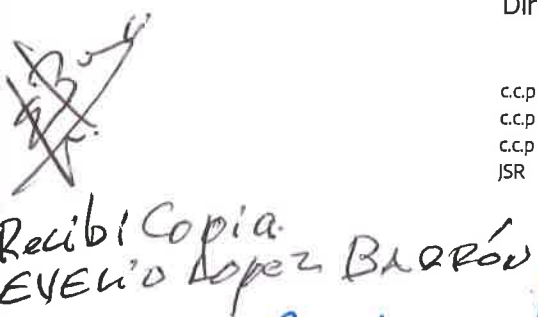 Dir
c.c.p
c.c.p
c.c.p
JSR
Recibí Copia.
EVELIO Lopez BARRÓN